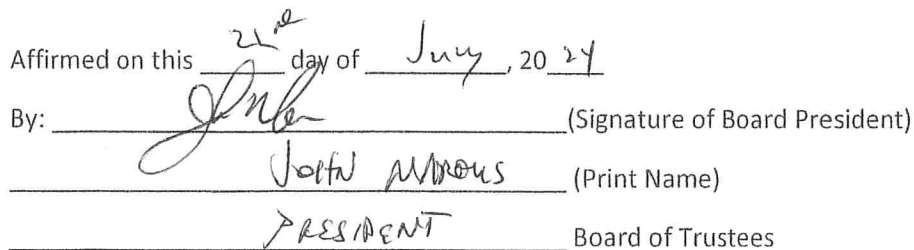 Affirmed on this 22nd day of July, 2024
By: (Signature of Board President)
JOHN (Print Name)
PRESIDENT Board of Trustees